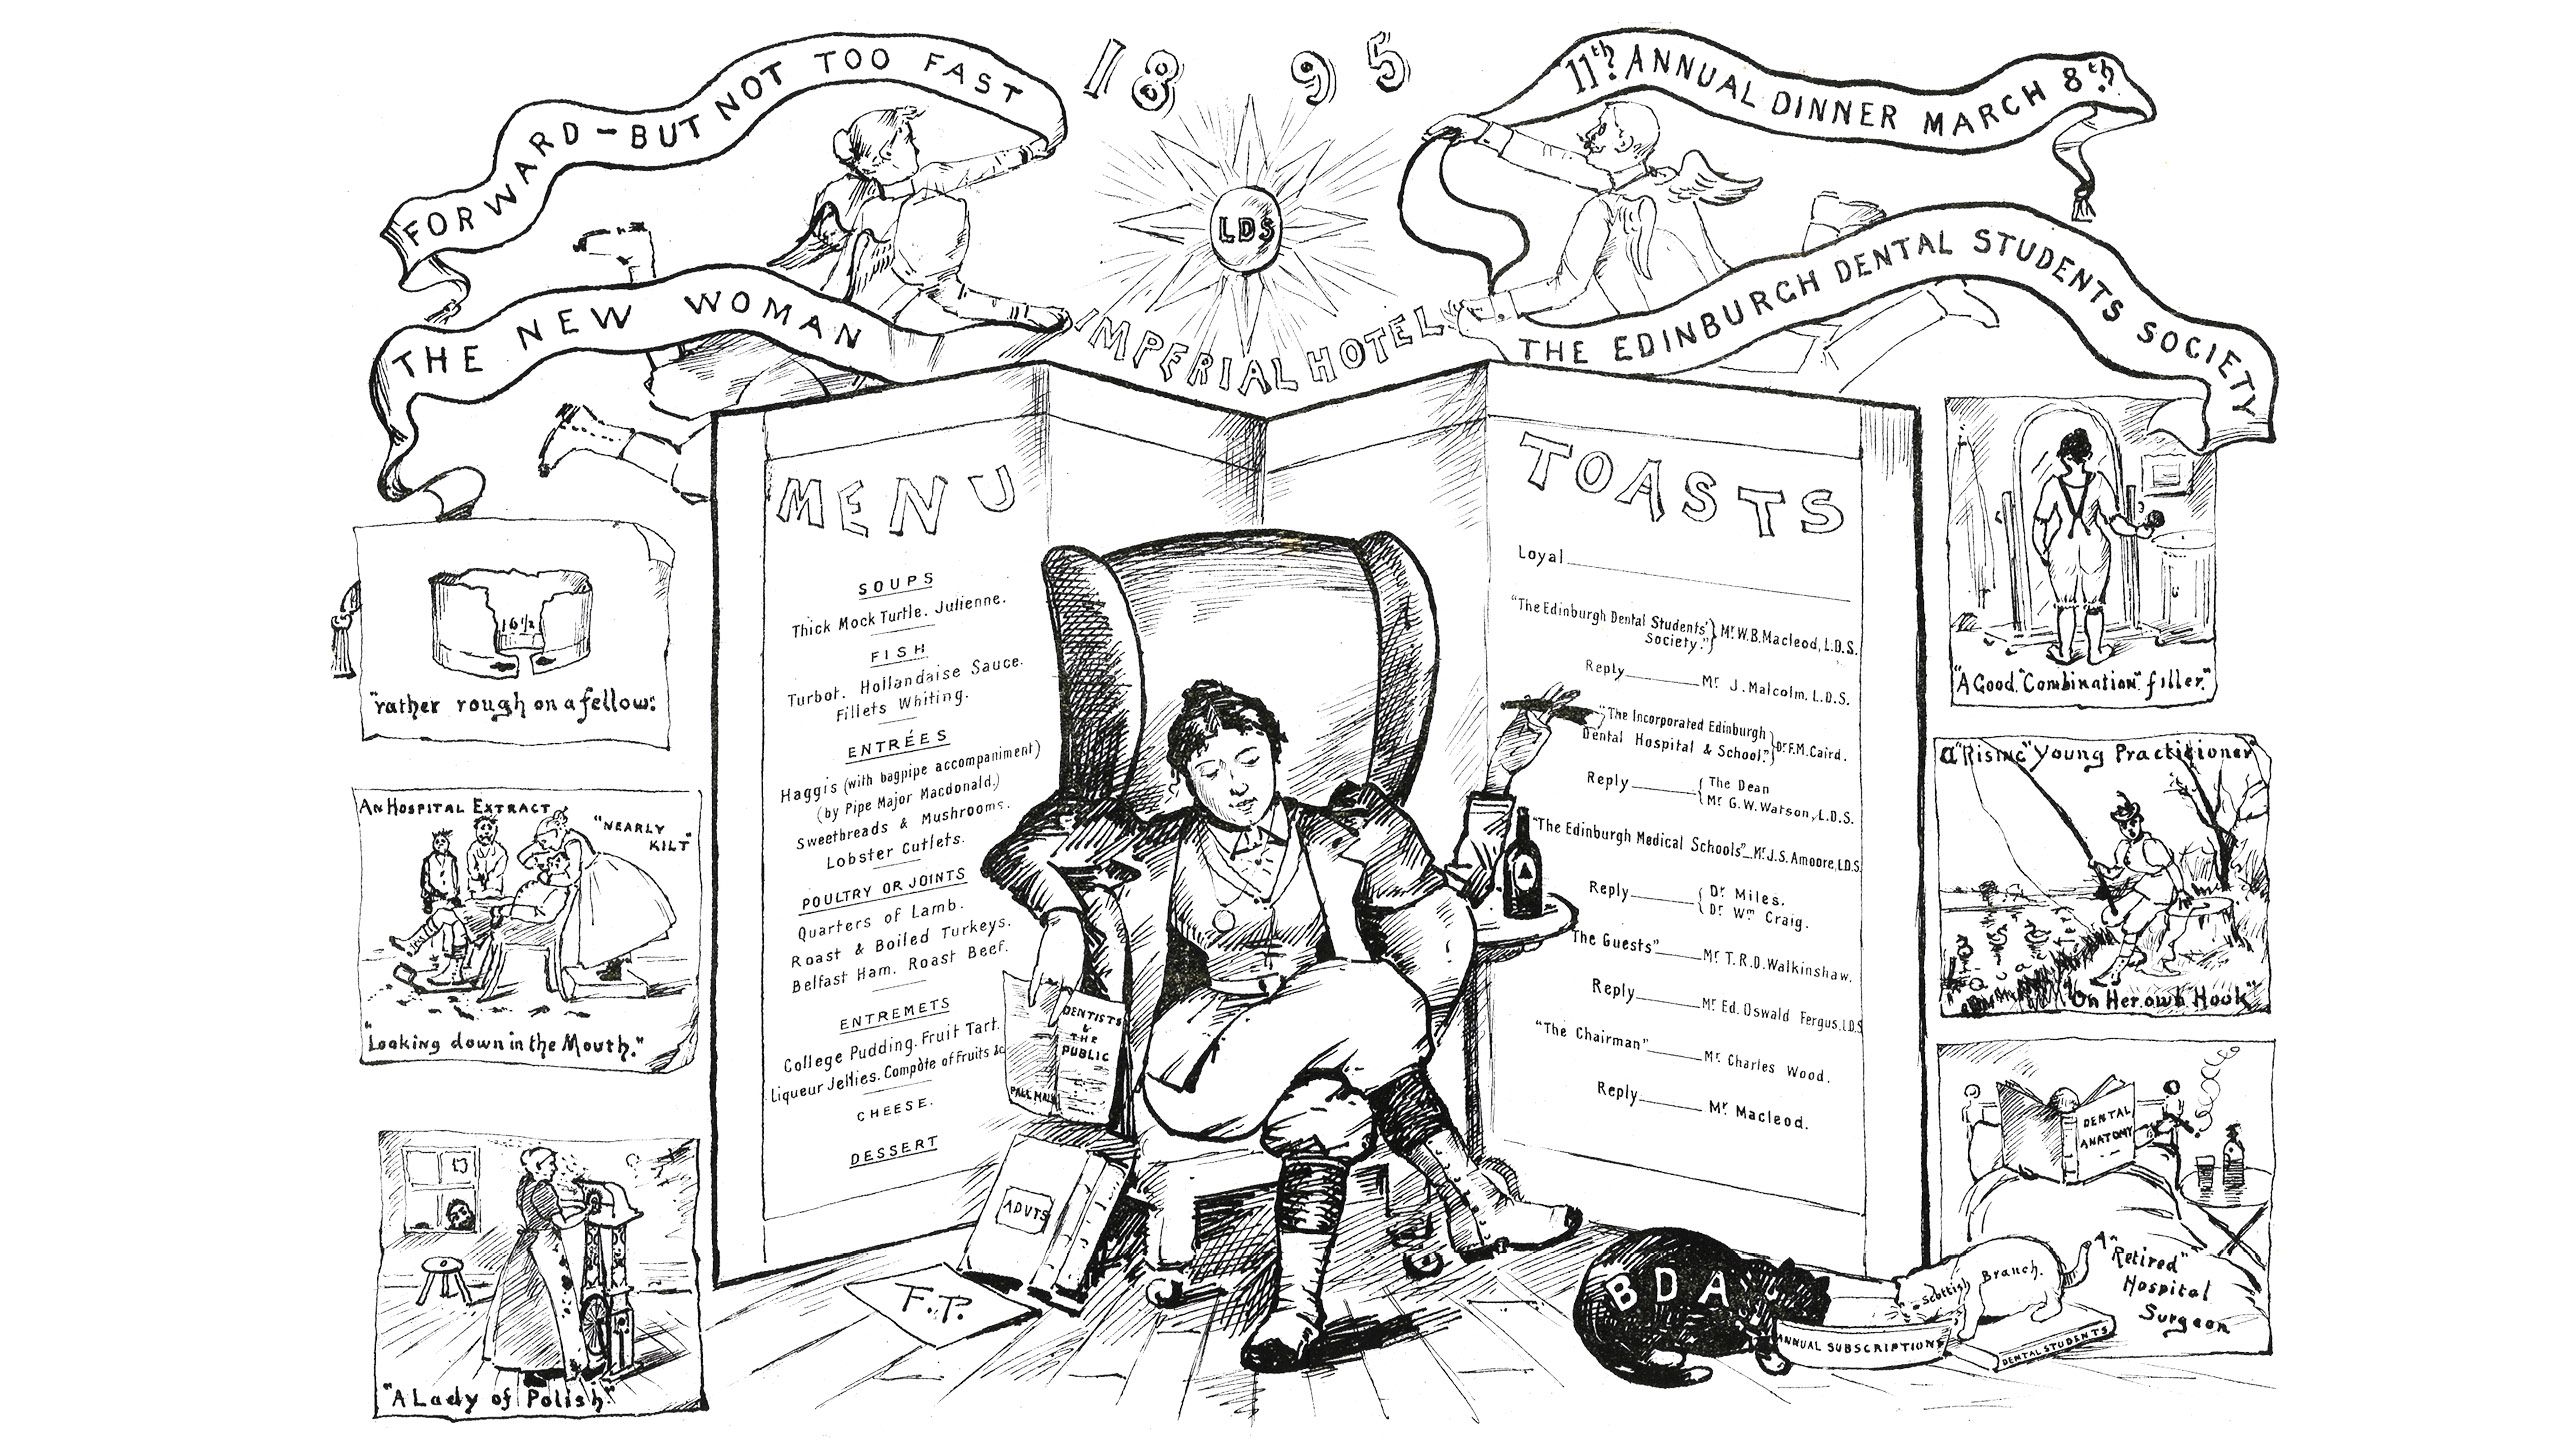 FORWARD - BUT NOT TOO FAST
1895
11th ANNUAL DINNER MARCH 8th
LDS
THE NEW WOMAN
IMPERIAL HOTEL
THE EDINBURGH DENTAL STUDENTS SOCIETY
16½
"rather rough on a fellow."
AN HOSPITAL EXTRACT
"NEARLY
KILT"
"Looking down in the Mouth."
"A Lady of Polish"
MENU
SOUPS
Thick Mock Turtle. Julienne.
FISH
Turbot. Hollandaise Sauce.
Fillets Whiting.
ENTRÉES
Haggis (with bagpipe accompaniment)
(by Pipe Major Macdonald.)
Sweetbreads & Mushrooms.
Lobster Cutlets.
POULTRY OR JOINTS
Quarters of Lamb.
Roast & Boiled Turkeys.
Belfast Ham. Roast Beef.
ENTREMETS
College Pudding. Fruit Tart.
Liqueur Jellies. Compòte of Fruits &c
CHEESE.
DESSERT
DENTISTS
&
THE
PUBLIC
PALL MALL
ADVTS
F.P.
TOASTS
Loyal
"The Edinburgh Dental Students' Society." } Mr. W.B. Macleod, L.D.S.
Reply Mr. J. Malcolm. L.D.S.
"The Incorporated Edinburgh
Dental Hospital & School." } Dr. F.M. Caird.
Reply { The Dean
Mr. G.W. Watson, L.D.S.
"The Edinburgh Medical Schools" Mr. J.S. Amoore, LDS
Reply { Dr. Miles.
Dr. Wm. Craig.
"The Guests" Mr. T.R.D. Walkinshaw.
Reply Mr. Ed. Oswald Fergus, LDS
"The Chairman" Mr. Charles Wood.
Reply Mr. Macleod.
"A Good "Combination" filler."
A "Rising" Young Practitioner"
"On Her own Hook"
DENTAL
ANATOMY
A
"Retired"
Hospital
Surgeon
BDA
Scottish Branch.
ANNUAL SUBSCRIPTIONS
DENTAL STUDENTS